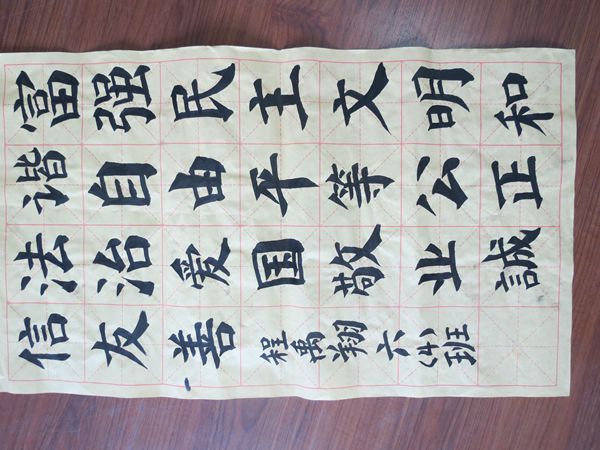 富强民主文明和
谐自由平等公正
法治爱国敬业誠
信友善 程禹翔 六(4)班